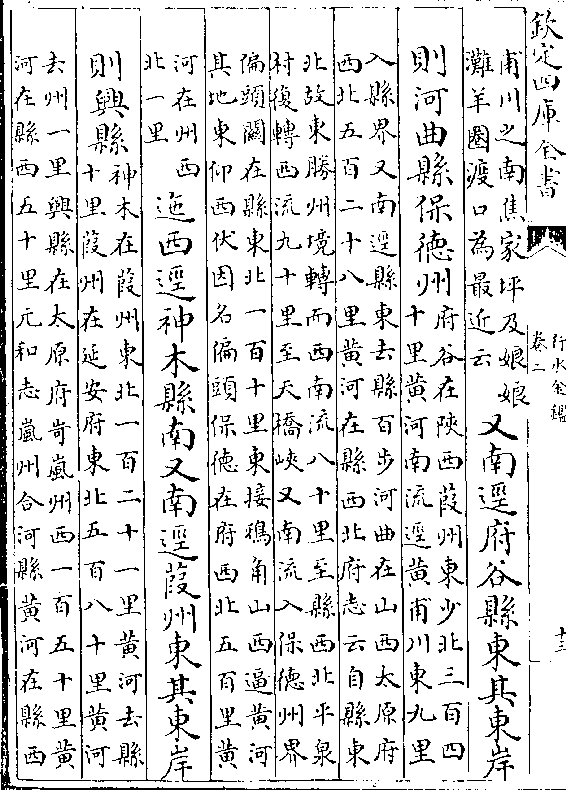 欽定四庫全書
行水金鑑
卷二
十三
甫川之南焦家坪及娘娘
灘羊圈渡口為最近云
又南逕府谷縣東其東岸
則河曲縣保德州
府谷在陝西葭州東少北三百四
十里黃河南流逕黃甫川東九里
入縣界又南逕縣東去縣百步河曲在山西太原府
西北五百二十八里黃河在縣西北府志云自縣東
北故東勝州境轉而西南流八十里至縣西北平泉
村復轉西流九十里至天橋峽又南流入保德州界
偏頭關在縣東北一百十里東接鴉角山西逼黃河
其地東仰西伏因名偏頭保德在府西北五百里黃
河在州西
北一里
迤西逕神木縣南又南逕葭州東其東岸
則興縣
神木在葭州東北一百二十一里黃河去縣
十里葭州在延安府東北五百八十里黃河
去州一里興縣在太原府岢嵐州西一百五十里黃
河在縣西五十里元和志嵐州合河縣黃河在縣西